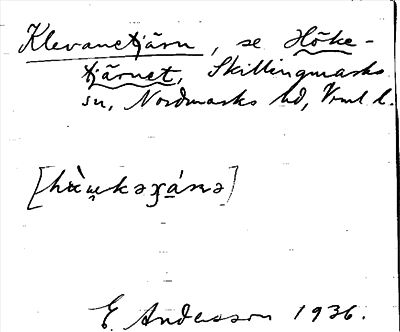 Klevanetjärn, se Höke-
tjärnet, Skillingmarks
sn, Nordmarks hd, Vrml l.
E. Andersson 1936.